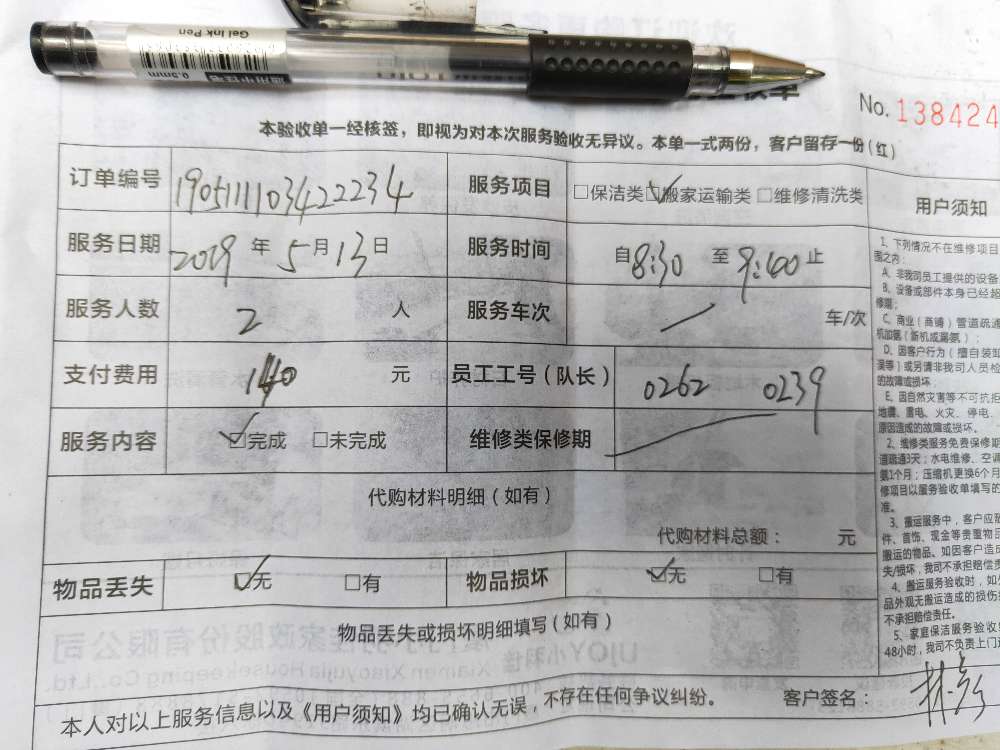 Gel Ink Pen
0.5mm
No. 138424
本验收单一经核签，即视为对本次服务验收无异议。本单一式两份，客户留存一份（红）
订单编号 190511103422234 服务项目 □保洁类 ☑搬家运输类 □维修清洗类
服务日期 2019 年 5 月 13 日 服务时间 自 8:30 至 9:40 止
服务人数 2 人 服务车次 / 车/次
支付费用 140 元 员工工号（队长） 0262 0239
服务内容 ☑完成 □未完成 维修类保修期 /
代购材料明细（如有）
代购材料总额： 元
物品丢失 ☑无 □有 物品损坏 ☑无 □有
物品丢失或损坏明细填写（如有）
本人对以上服务信息以及《用户须知》均已确认无误，不存在任何争议纠纷。 客户签名：
用户须知
1、下列情况不在维修项目
围之内：
A、非我司员工提供的设备
B、设备或部件本身已经超
修期；
C、商业（商铺）管道疏通
机加氨（新机或漏氨）；
D、因客户行为（擅自装卸
误等）或另请非我司人员检
的故障或损坏
E、因自然灾害等不可抗拒
地震、雷电、火灾、停电、
原因造成的故障或损坏。
2、维修类服务免费保修期
道疏通3天；水电维修、空调
氨1个月；压缩机更换6个月
修项目以服务验收单填写的
准。
3、搬运服务中，客户应
件、首饰、现金等贵重物品
搬运的物品。如因客户造成
失/损坏，我司不承担赔偿责
4、搬运服务验收时，如
品外观无搬运造成的损伤
不承担赔偿责任。
5、家庭保洁服务验收
48小时，我司不负责上门